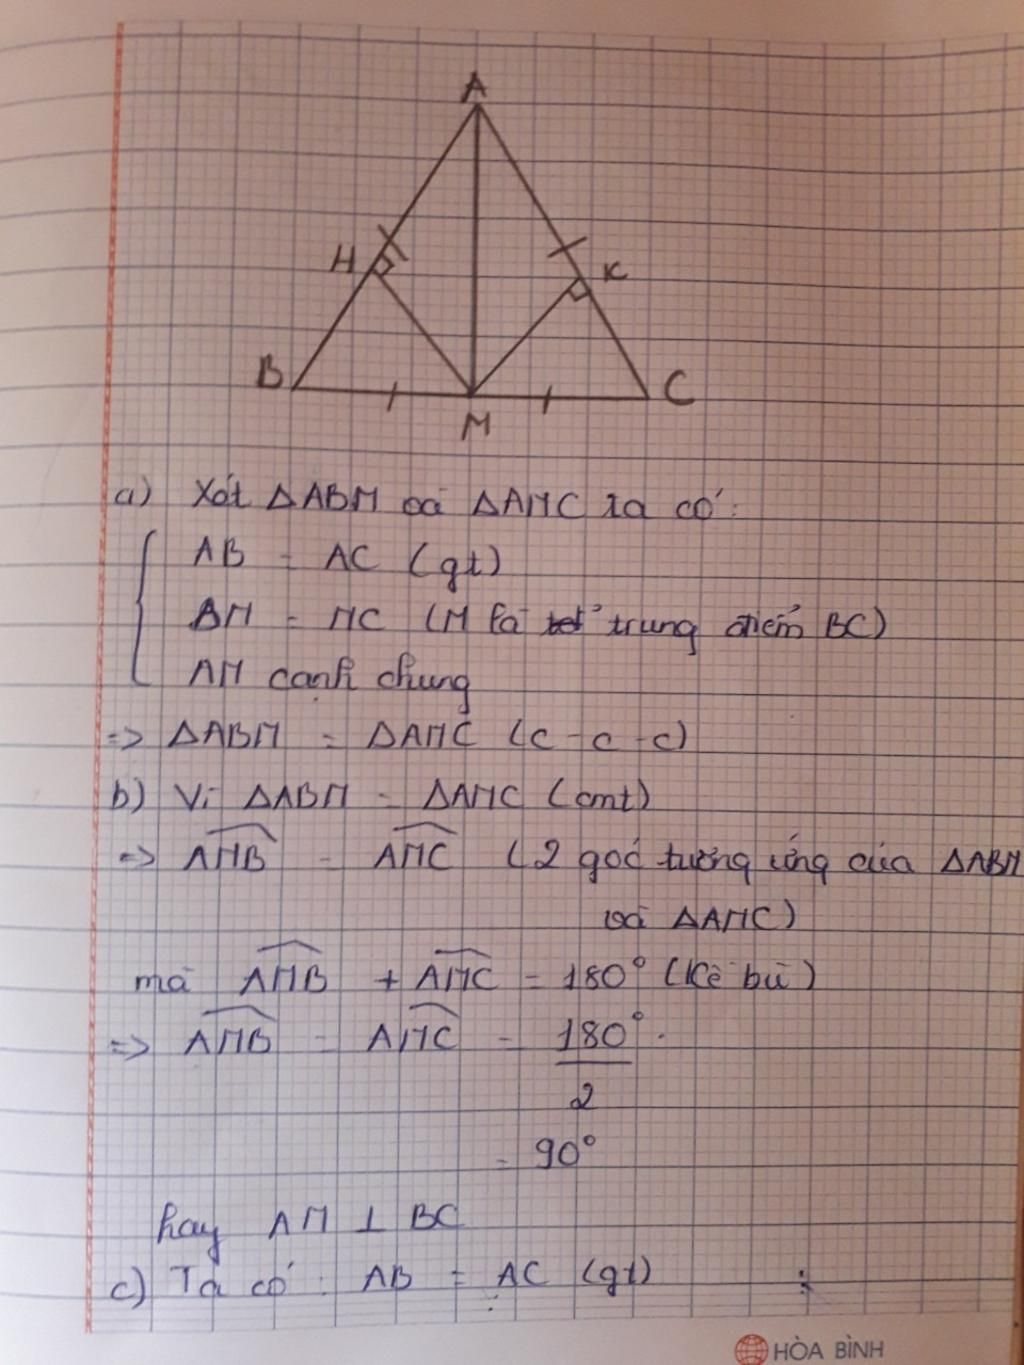 A
H
K
B
C
M
a) Xét ΔABM và ΔAMC ta có:
AB = AC (gt)
BM = MC (M là trung điểm BC)
AM cạnh chung
=> ΔABM = ΔAMC (c-c-c)
b) Vì ΔABM = ΔAMC (cmt)
=> AMB = AMC (2 góc tương ứng của ΔABM
và ΔAMC)
mà AMB + AMC = 180° (kề bù)
=> AMB = AMC = 180°
2
= 90°
hay AM ⊥ BC
c) Ta có: AB = AC (gt)
HÒA BÌNH